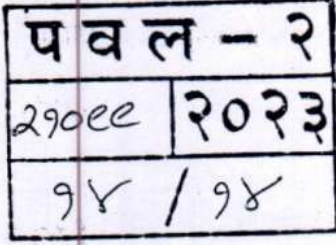 प व ल - २
२१०९९ २०२३
१४ / १४